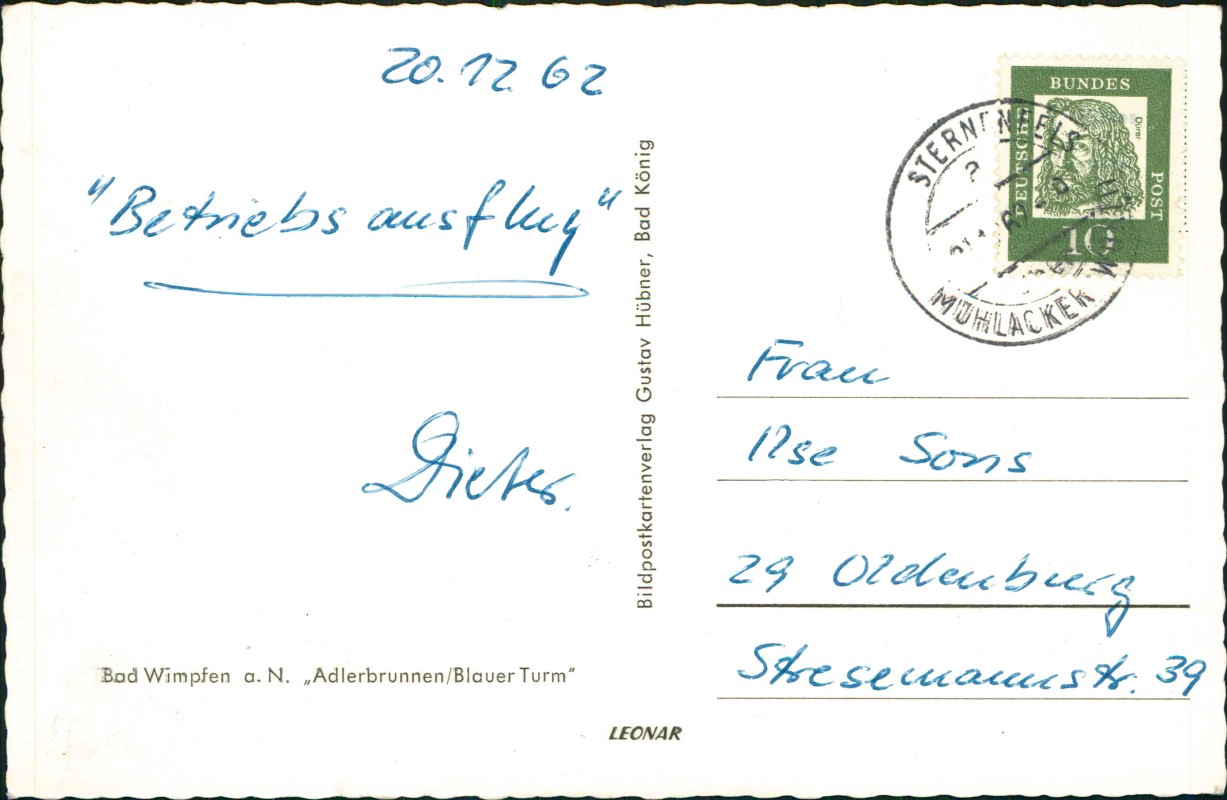 20.12.62
"Betriebsausflug"
Dieter.
Bad Wimpfen a. N. „Adlerbrunnen/Blauer Turm"
LEONAR
Bildpostkartenverlag Gustav Hübner, Bad König
DEUTSCHE BUNDES POST
Dürer
10
STERNENFELS
MÜHLACKER
Frau
Ilse Sons
29 Oldenburg
Stresemannstr. 39